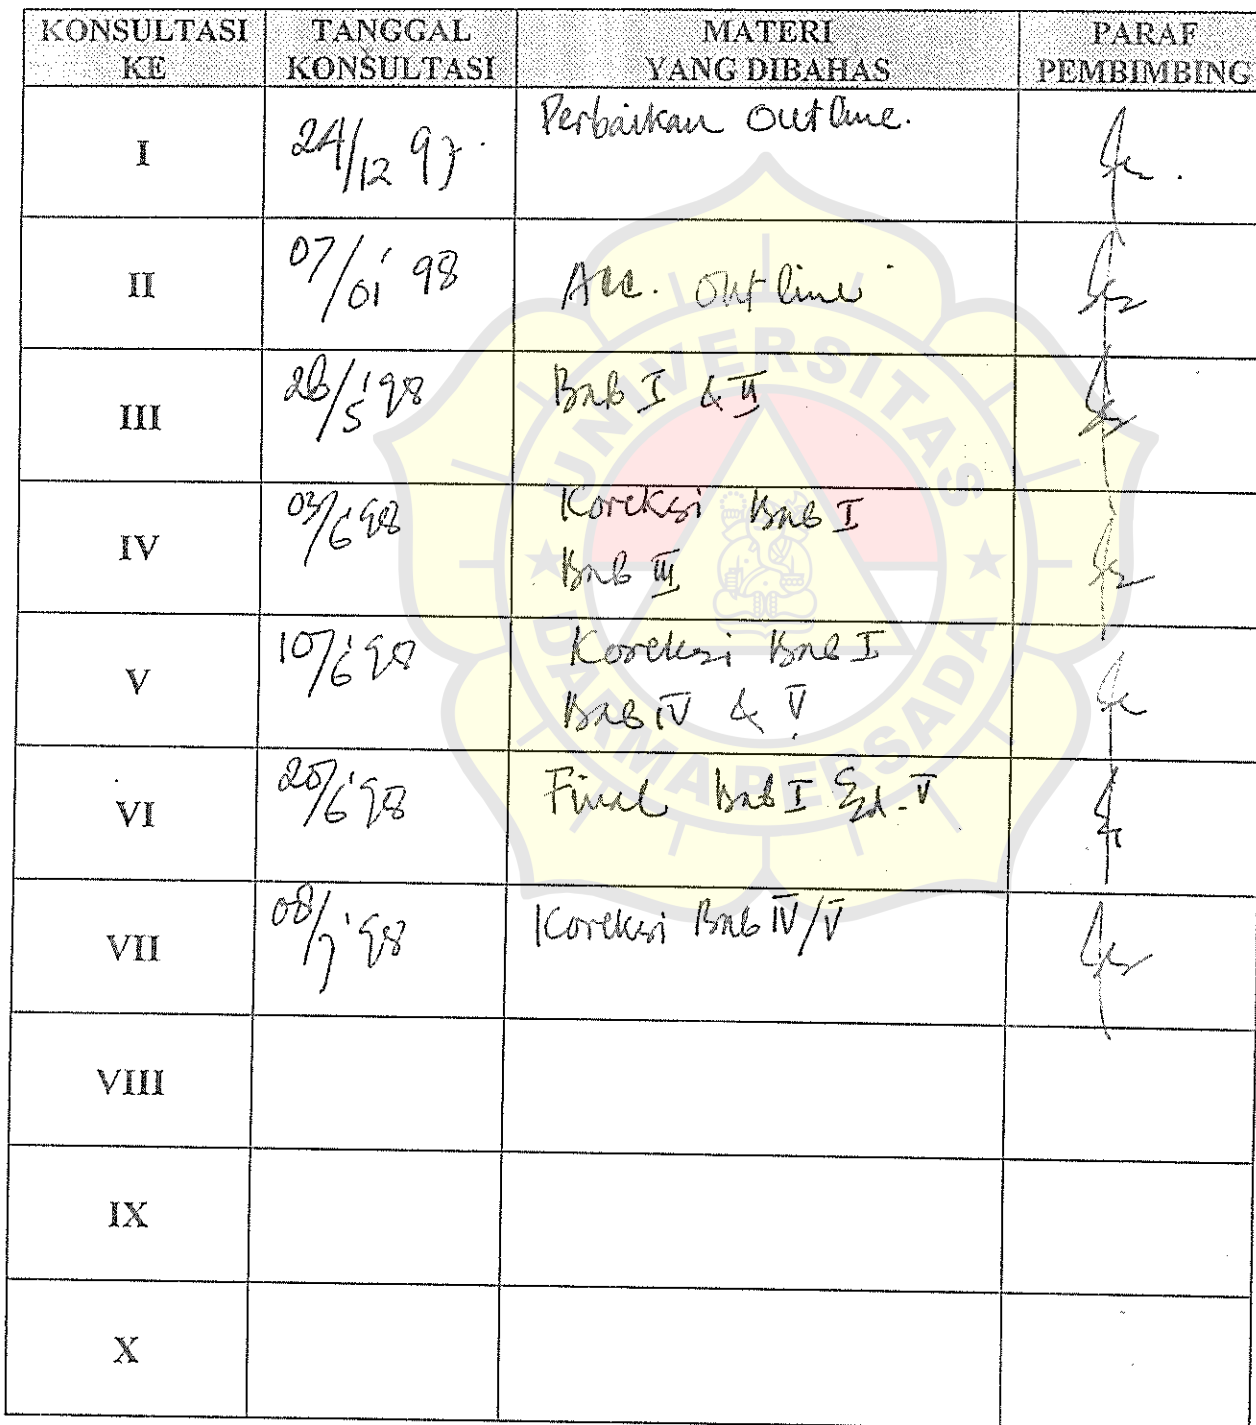 KONSULTASI KE
TANGGAL KONSULTASI
MATERI YANG DIBAHAS
PARAF PEMBIMBING
I
24/12 97.
Perbaikan Outline.
II
07/01' 98
Acc. Outline
III
26/5 '98
Bab I & II
IV
03/6 '98
Koreksi Bab I
Bab III
V
10/6 '98
Koreksi Bab I
Bab IV & V
VI
/6 '98
Final Bab I V
VII
08/7 '98
Koreksi Bab IV/V
VIII
IX
X
UNIVERSITAS
DARMA PERSADA